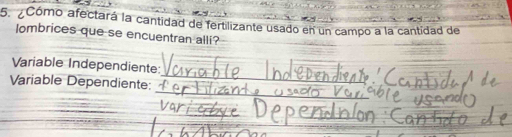 5. ¿Cómo afectará la cantidad de fertilizante usado en un campo a la cantidad de
lombrices que se encuentran allí?
Variable Independiente: Variable Independiente: Cantidad de
Variable Dependiente: fertilizante usado Variable usando
Variable Dependnion: Cantido de